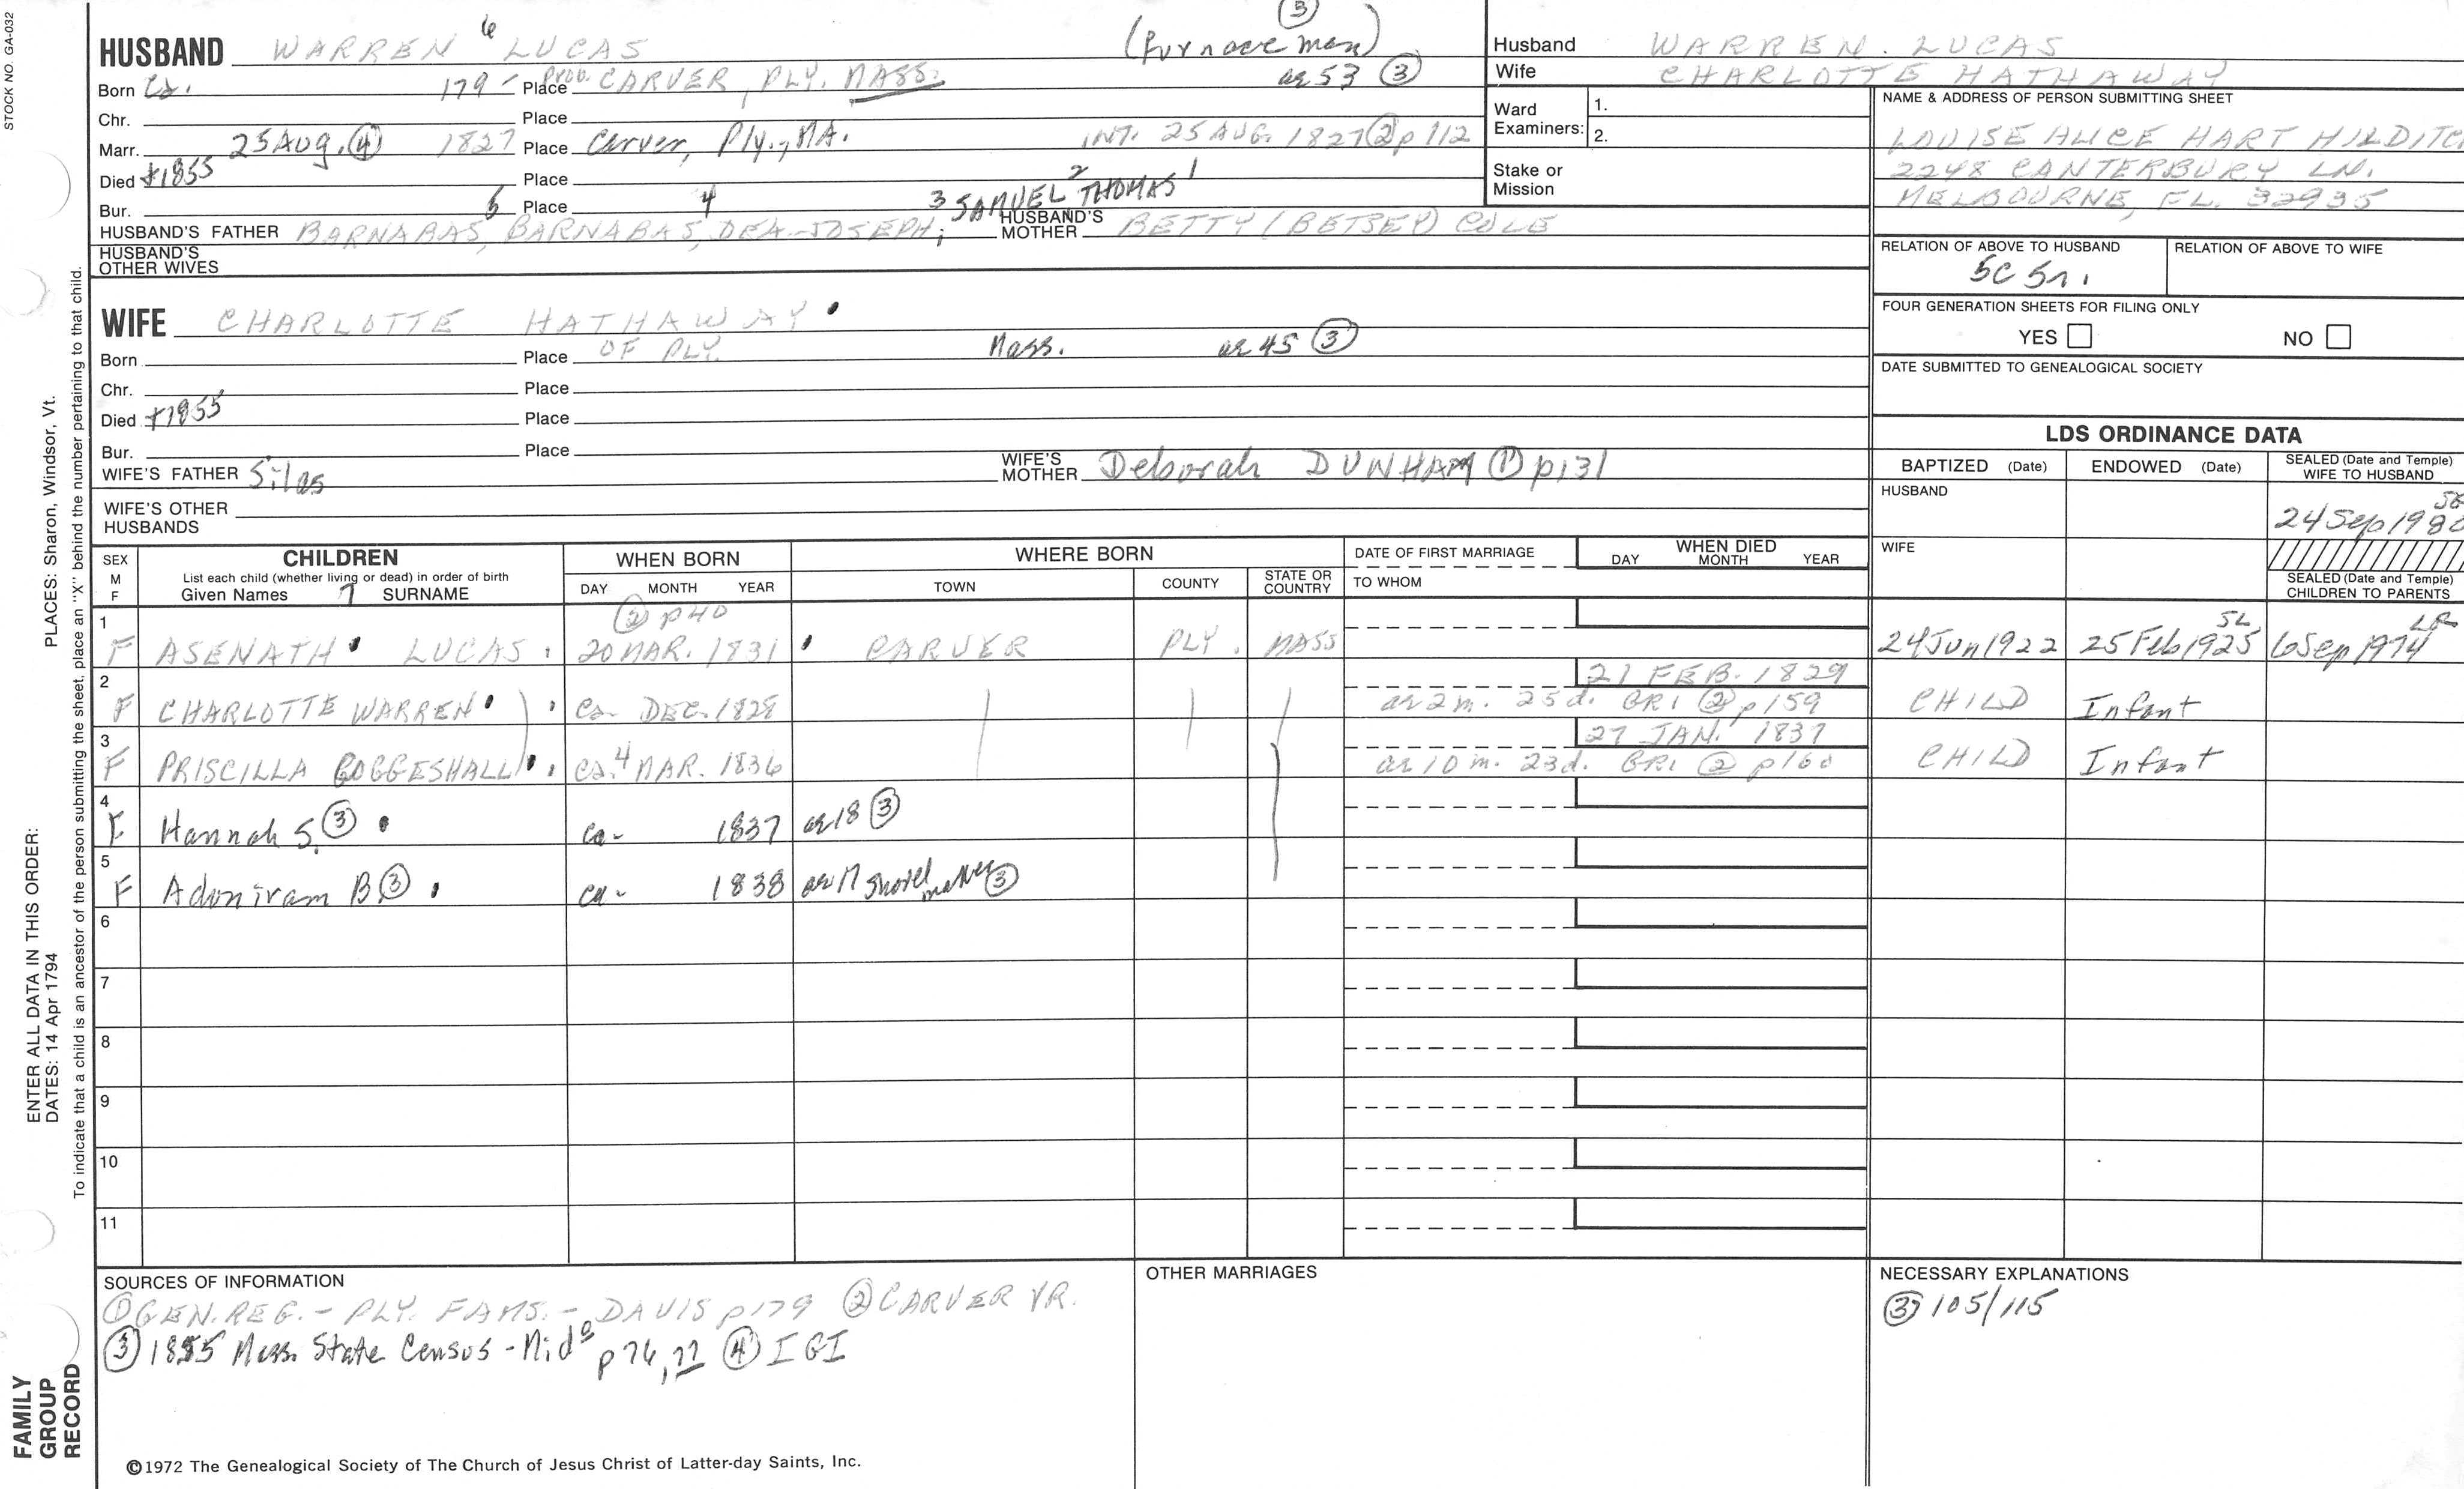 STOCK NO. GA-032
HUSBAND WARREN 6 LUCAS (furnace man) ③
Born Ca. 179- Place Prob. CARVER, PLY. MASS. ae 53 ③
Chr. Place
Marr. 25 Aug. ④ 1827 Place Carver, Ply., MA. INT. 25 AUG. 1827 ② p 112
Died +1855 Place
Bur. Place
5 4 3 SAMUEL 2 THOMAS 1
HUSBAND'S FATHER BARNABAS, BARNABAS, DEA. JOSEPH; HUSBAND'S MOTHER BETTY (BETSEY) COLE
HUSBAND'S OTHER WIVES
WIFE CHARLOTTE HATHAWAY
Born Place OF PLY. Mass. ae 45 ③
Chr. Place
Died +1855 Place
Bur. Place
WIFE'S FATHER Silas WIFE'S MOTHER Deborah DUNHAM ① p131
WIFE'S OTHER HUSBANDS
Husband WARREN LUCAS
Wife CHARLOTTE HATHAWAY
Ward Examiners: 1.
2.
Stake or Mission
NAME & ADDRESS OF PERSON SUBMITTING SHEET
LOUISE ALICE HART HILDITC
2248 CANTERBURY LN.
MELBOURNE, FL. 32935
RELATION OF ABOVE TO HUSBAND RELATION OF ABOVE TO WIFE
5C 5r.
FOUR GENERATION SHEETS FOR FILING ONLY
YES NO
DATE SUBMITTED TO GENEALOGICAL SOCIETY
LDS ORDINANCE DATA
BAPTIZED (Date) ENDOWED (Date) SEALED (Date and Temple) WIFE TO HUSBAND
HUSBAND 24 Sep 198
WIFE
SEALED (Date and Temple) CHILDREN TO PARENTS
SEX M F CHILDREN WHEN BORN WHERE BORN DATE OF FIRST MARRIAGE WHEN DIED
List each child (whether living or dead) in order of birth
Given Names SURNAME DAY MONTH YEAR TOWN COUNTY STATE OR COUNTRY TO WHOM DAY MONTH YEAR
7
② p40
1 F ASENATH LUCAS 20 MAR. 1831 CARVER PLY. MASS 24 Jun 1922 25 Feb 1925 SL 6 Sep 1974
2 F CHARLOTTE WARREN ca. DEC. 1828 21 FEB. 1829
ae 2 m. 25 d. GR1 ② p159 CHILD Infant
3 F PRISCILLA COGGESHALL ca. 4 MAR. 1836 27 JAN. 1837
ae 10 m. 23 d. GR1 ② p160 CHILD Infant
4 F Hannah S. ③ ca- 1837 ae 18 ③
5 F Adoniram B ③ ca- 1838 ae 17 shovel maker ③
6
7
8
9
10
11
SOURCES OF INFORMATION
① GEN. REG. - PLY. FAMS. - DAVIS p179 ② CARVER VR.
③ 1855 Mass. State Census - Mido p 76, 77 ④ IGI
OTHER MARRIAGES
NECESSARY EXPLANATIONS
③ 105/115
©1972 The Genealogical Society of The Church of Jesus Christ of Latter-day Saints, Inc.
FAMILY GROUP RECORD
ENTER ALL DATA IN THIS ORDER:
DATES: 14 Apr 1794 PLACES: Sharon, Windsor, Vt.
To indicate that a child is an ancestor of the person submitting the sheet, place an "X" behind the number pertaining to that child.